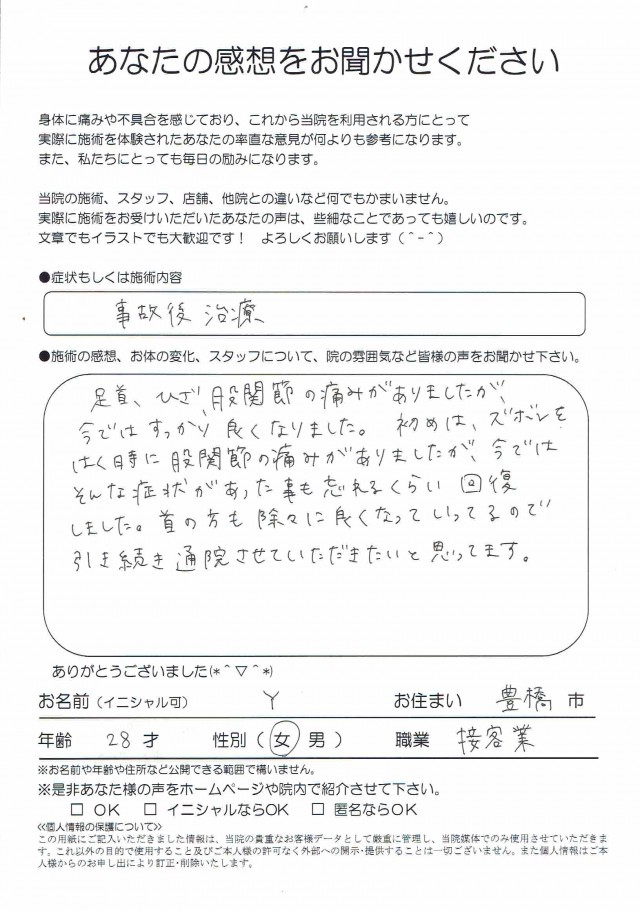 あなたの感想をお聞かせください
身体に痛みや不具合を感じており、これから当院を利用される方にとって
実際に施術を体験されたあなたの率直な意見が何よりも参考になります。
また、私たちにとっても毎日の励みになります。
当院の施術、スタッフ、店舗、他院との違いなど何でもかまいません。
実際に施術をお受けいただいたあなたの声は、些細なことであっても嬉しいのです。
文章でもイラストでも大歓迎です！ よろしくお願いします（＾－＾）
●症状もしくは施術内容
事故後 治療
●施術の感想、お体の変化、スタッフについて、院の雰囲気など皆様の声をお聞かせ下さい。
足首、ひざ、股関節の痛みがありましたが、
今ではすっかり良くなりました。 初めは、ズボンを
はく時に股関節の痛みがありましたが、今では
そんな症状があった事も忘れるくらい回復
しました。首の方も除々に良くなっていってるので
引き続き通院させていただきたいと思ってます。
ありがとうございました(*＾▽＾*)
お名前（イニシャル可） Y お住まい 豊橋 市
年齢 28 才 性別（ 女 男 ） 職業 接客業
※お名前や年齢や住所など公開できる範囲で構いません。
※是非あなた様の声をホームページや院内で紹介させて下さい。
□ OK □ イニシャルならOK □ 匿名ならOK
≪個人情報の保護について≫
この用紙にご記入いただきました情報は、当院の貴重なお客様データとして厳重に管理し、当院媒体でのみ使用させていただきま
す。これ以外の目的で使用すること及びご本人様の許可なく外部への開示・提供することは一切ございません。また個人情報はご本
人様からのお申し出により訂正・削除いたします。